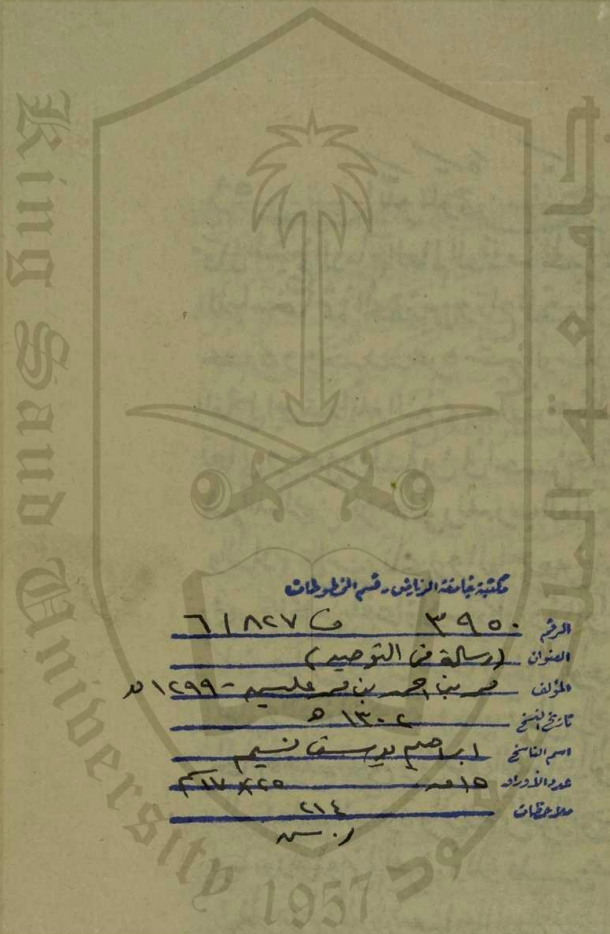 King Saud University
جامعة الملك سعود
1957
مكتبة جامعة الرياض - قسم المخطوطات
الرقم ٣٩٥٠ ف ٦/٨٢٧
العنوان (رسالة في التوحيد)
المؤلف محمد بن احمد بن محمد عليش - ١٢٩٩ هـ
تاريخ النسخ ١٣٠٢ هـ
اسم الناسخ ابراهيم يوسف نسيم
عدد الأوراق ١٥
ملاحظات ٢١٤